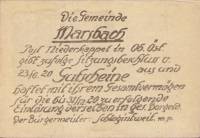 Die Gemeinde
Marsbach
Post Niederkappel in Ob. Öst.
gibt zufolge Sitzungsbeschluß v.
23/5. 20 Gutscheine aus und
haftet mit ihrem Gesamtvermögen
für die bis 31/12 20 zu erfolgende
Einlösung derselben in ges. Bargeld.
Der Bürgermeister: